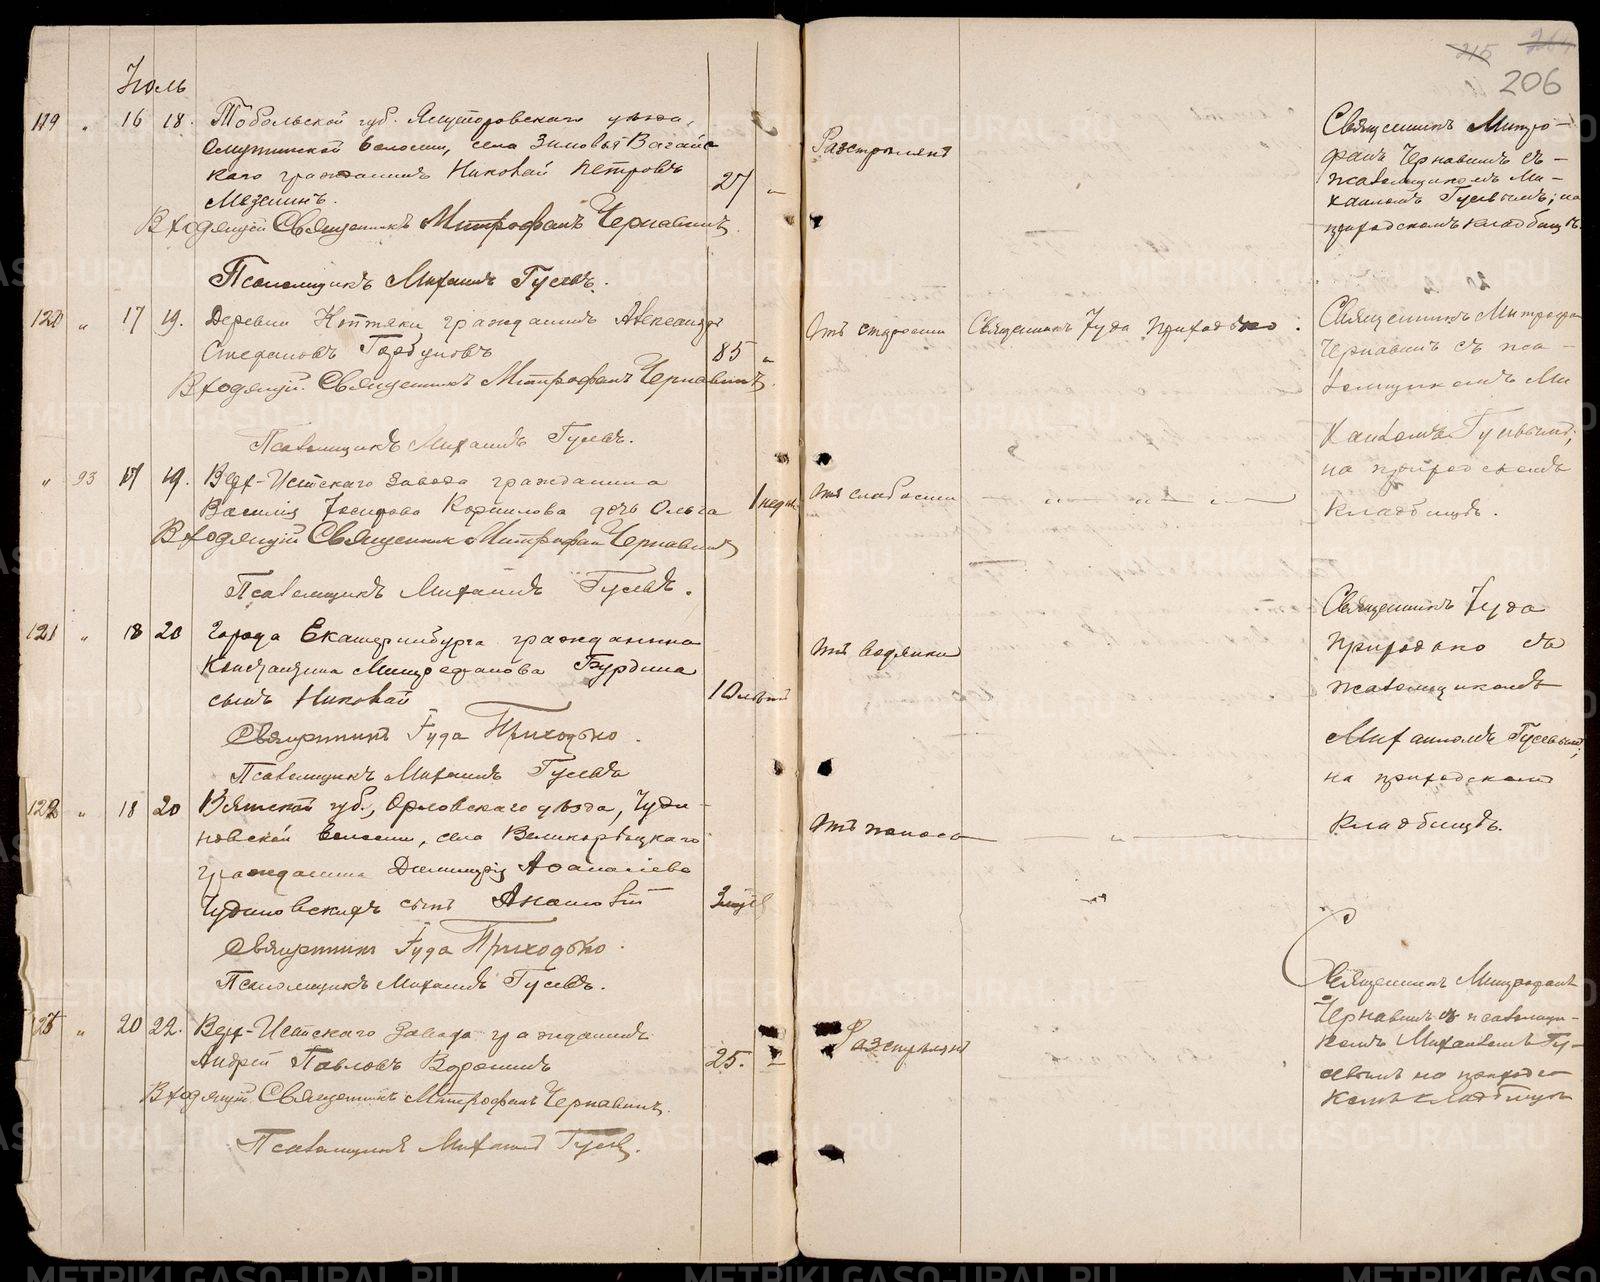 215 264
206
Іюль
119 „ 16 18. Тобольской губ. Ялуторовскаго уѣзда,
Омутинской волости, села Зимовья Вагайс
каго гражданинъ Николай Петровъ
Мезенинъ. 27 „
Входящій Священникъ Митрофанъ Чернавинъ.
Псаломщикъ Михаилъ Гусевъ.
Разстрѣлянъ
Священникъ Митро-
фанъ Чернавинъ съ
псаломщикомъ Ми-
хаиломъ Гусевымъ; на
приходскомъ кладбищѣ.
120 „ 17 19. Деревни Коптяки гражданинъ Александръ
Стефановъ Горбуновъ 85 „
Входящій Священникъ Митрофанъ Чернавинъ.
Псаломщикъ Михаилъ Гусевъ.
Отъ старости Священникъ Іуда Приходько.
Священникъ Митрофа
Чернавинъ съ пса-
ломщикомъ Ми
хаиломъ Гусевымъ,
на приходскомъ
кладбищѣ.
„ 93 17 19. Верх-Исетскаго завода гражданина
Василія Іосифова Корнилова дочь Ольга 1 недѣл.
Входящій Священникъ Митрофанъ Чернавинъ
Псаломщикъ Михаилъ Гусевъ.
Отъ слабости — „ — „ — „ —
121 „ 18 20 Города Екатеринбурга гражданина
Константина Митрофанова Бурдина
сынъ Николай 10 лѣтъ
Священникъ Іуда Приходько.
Псаломщикъ Михаилъ Гусевъ
Отъ водянки
Священникъ Іуда
Приходько съ
псаломщикомъ
Михаиломъ Гусевымъ,
на приходскомъ
кладбищѣ.
122 „ 18 20 Вятской губ., Орловскаго уѣзда, Чуди-
новской волости, села Великорѣцкаго
гражданина Димитрія Аѳанасіева
Чудиновскихъ сынъ Анатолій
Священникъ Іуда Приходько.
Псаломщикъ Михаилъ Гусевъ.
Отъ поноса — „ —
123 „ 20 22. Верх-Исетскаго Завода гражданинъ
Андрей Павловъ Воронинъ 25.
Входящій Священникъ Митрофанъ Чернавинъ.
Псаломщикъ Михаилъ Гусевъ.
Разстрѣлянъ
Священникъ Митрофанъ
Чернавинъ съ псаломщи-
комъ Михаиломъ Гу-
севымъ на приходс
комъ кладбищѣ
METRIKI.GASO-URAL.RU